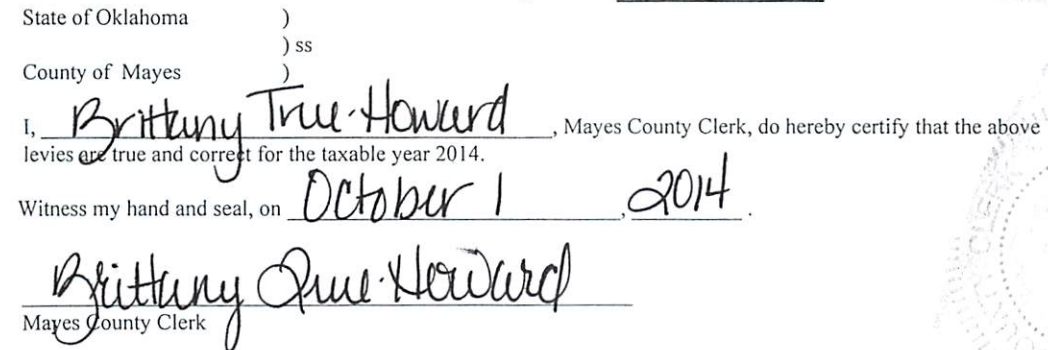 State of Oklahoma )
) ss
County of Mayes )
I, Brittany True-Howard, Mayes County Clerk, do hereby certify that the above
levies are true and correct for the taxable year 2014.
Witness my hand and seal, on October 1, 2014.
Brittany True-Howard
Mayes County Clerk